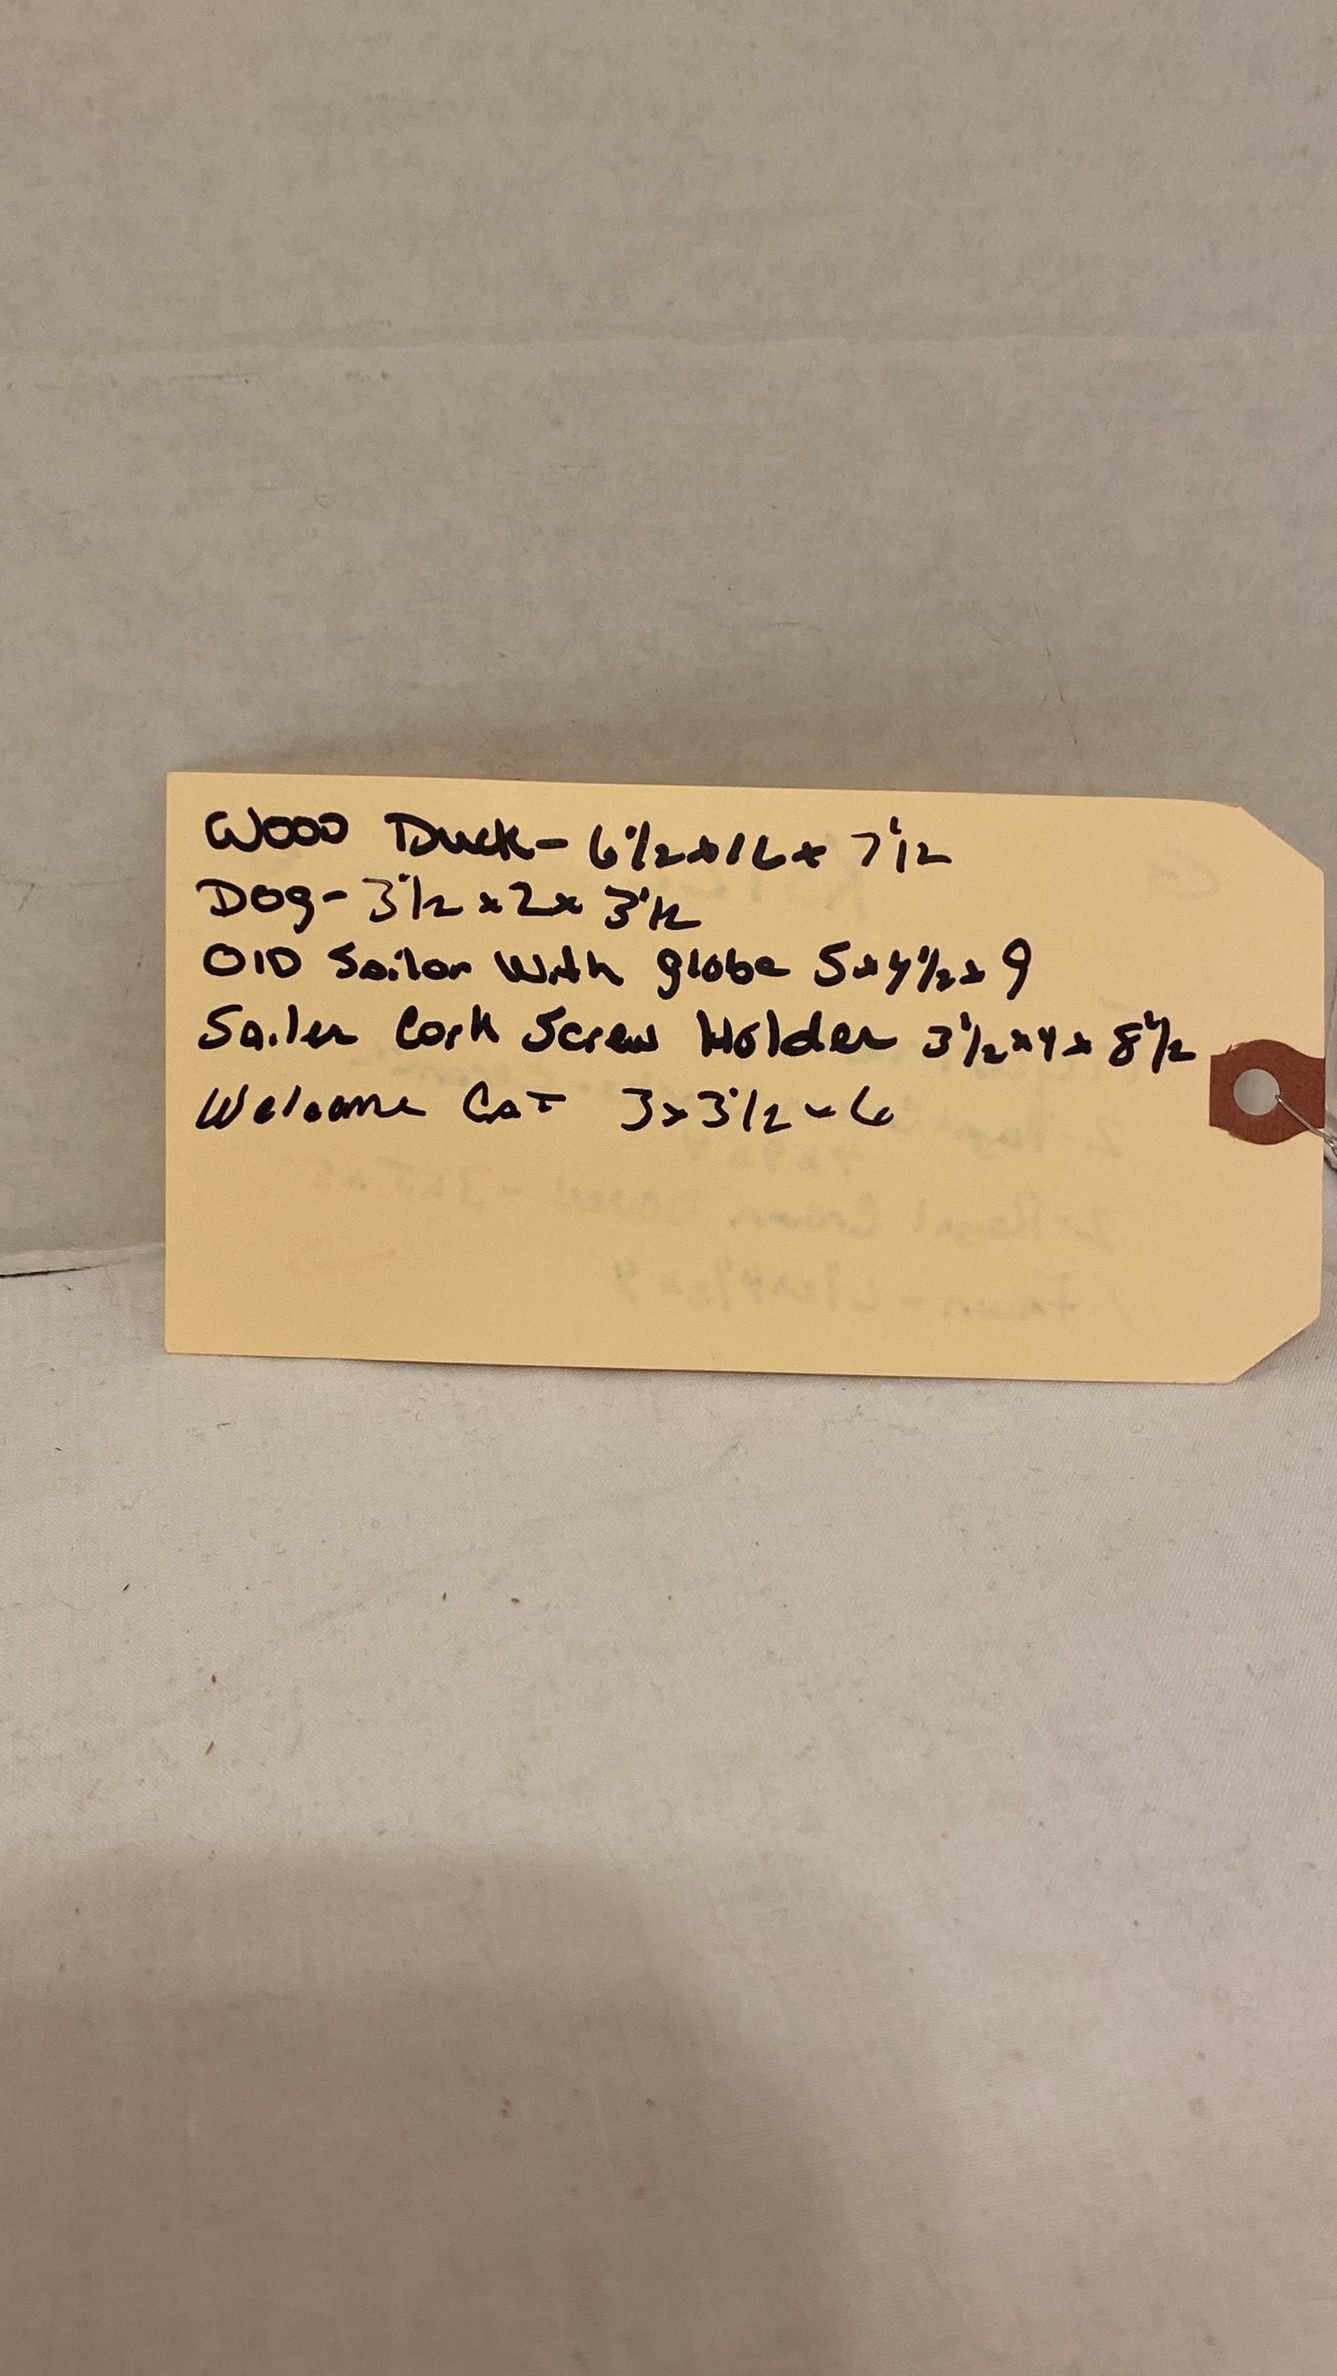 Wood Duck - 6 1/2 x 16 x 7 1/2
Dog - 3 1/2 x 2 x 3 1/2
Old Sailor With globe 5 x 4 1/2 x 9
Sailer Cork Screw Holder 3 1/2 x 4 x 8 1/2
Welcome Cat 3 x 3 1/2 x 6